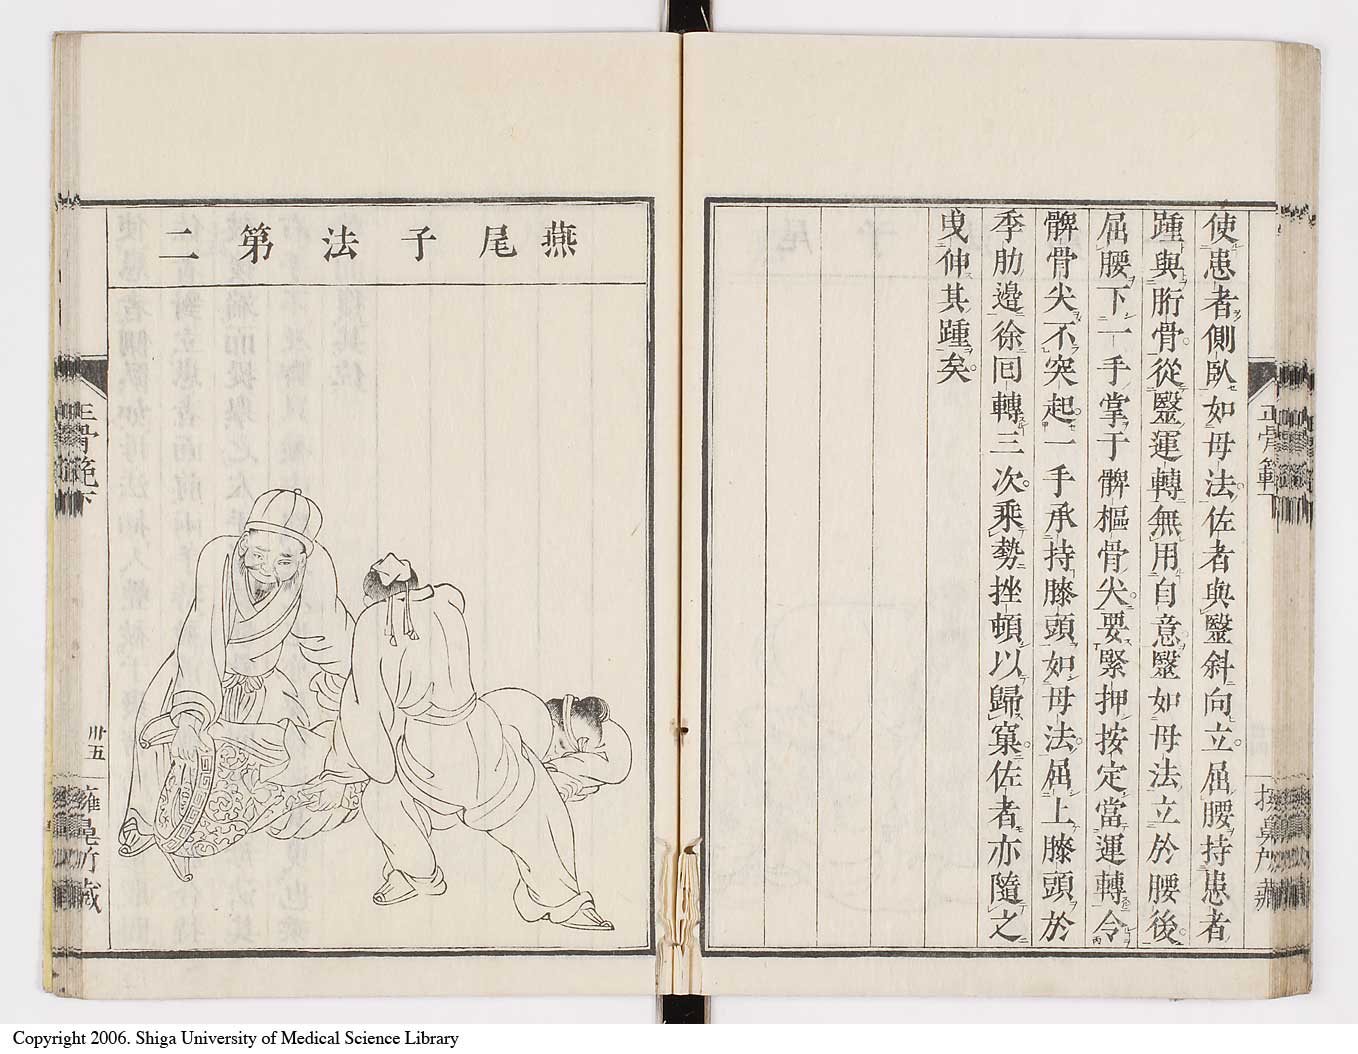 使患者側臥如母法佐者與毉斜向立屈腰持患者
踵與胻骨從毉運轉無用自意毉如母法立於腰後
屈腰下一手掌于髀樞骨尖要緊押按定當運轉令
髀骨尖不突起一手承持膝頭如母法屈上膝頭於
季肋邉徐囘轉三次乘勢挫頓以歸窠佐者亦隨之
曳伸其踵矣
燕尾子法第二
正骨範下
卅五
Copyright 2006. Shiga University of Medical Science Library